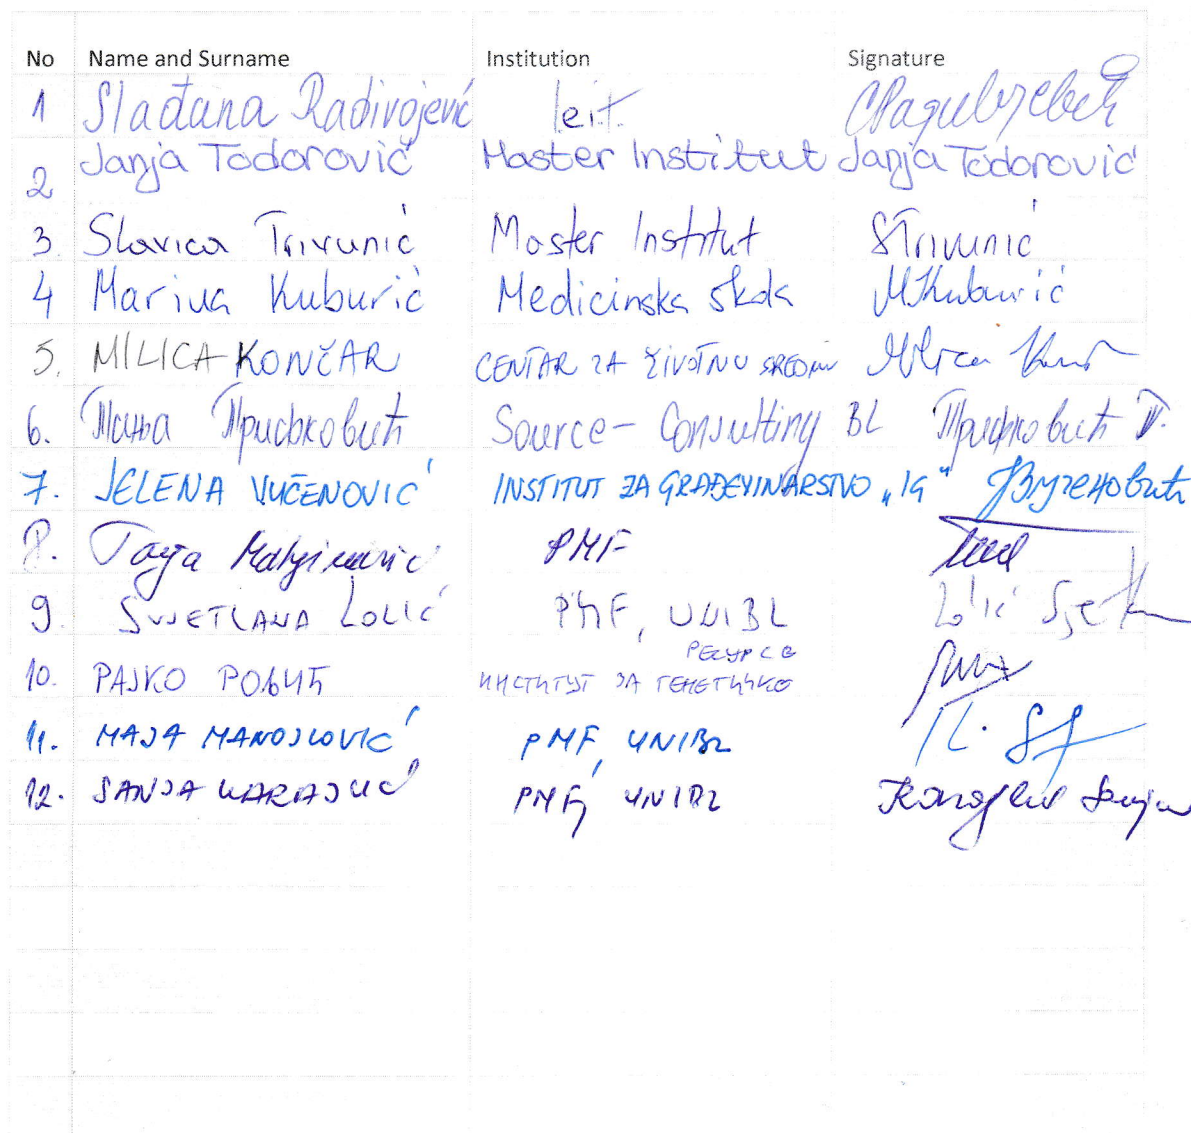 No Name and Surname Institution Signature
1 Slađana Radivojević leit. С Радивојевић
2 Janja Todorović Master Institut Janja Todorović
3. Slavica Trivunić Master Institut STrivunić
4 Marina Kuburić Medicinska škola MKuburić
5. MILICA KONČAR CENTAR ZA ŽIVOTNU SREDINU Milica
6. Тања Трифковић Source-Consulting BL Трифковић Т.
7. JELENA VUČENOVIĆ INSTITUT ZA GRAĐEVINARSTVO „IG" ЈВученовић
8. Tanja Maksimović PMF
9. SVJETLANA LOLIĆ PMF, UNIBL Lolić
РЕСУРСЕ
10. РАЈКО РОЉИЋ ИНСТИТУТ ЗА ГЕНЕТИЧКЕ
11. MAJA MANOJLOVIĆ PMF, UNIBL
12. SANJA KARAJLIĆ PMF, UNIBL